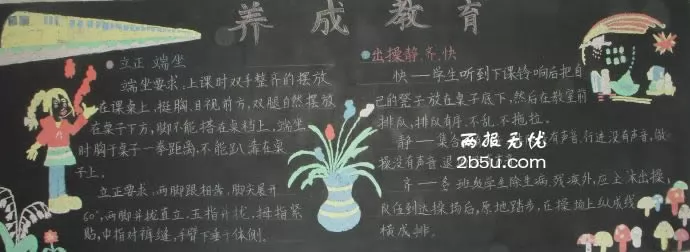 养成教育
立正 端坐
端坐要求,上课时双手整齐的摆放
在课桌上,挺胸,目视前方,双腿自然摆放
在桌子下方,脚不能搭在桌档上,端坐
时胸于桌子一拳距离,不能趴靠在桌
子上。
立正要求,两脚跟相落,脚尖展开
60°,两脚并拢直立,五指并拢,拇指紧
贴,中指对裤缝,手臂下垂于体侧。
出操静、齐、快
快——学生听到下课铃响后把自
己的凳子放在桌子底下,然后在教室前
排队,排队有序,不乱,不拖拉。
静——集合 有声音,行进没有声音,做
操没有声音,退
齐——各班级学生除生病,残病外,应全体出操,
队伍到达操场后,原地踏步,在操场上纵成线,
横成排。
两报无忧
2b5u.com